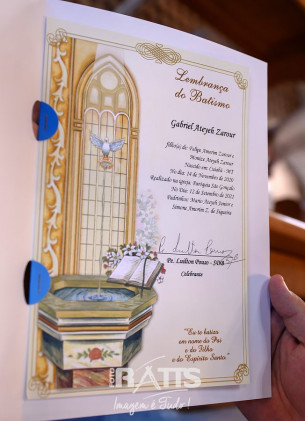 Lembrança
do Batismo
Gabriel Ateyeh Zarour
filho(a) de: Felipe Amorim Zarour e
Monica Ateyeh Zarour
Nascido em Cuiabá - MT
No dia: 14 de Novembro de 2020
Realizado na igreja: Paróquia São Gonçalo
No Dia: 12 de Setembro de 2021
Padrinhos: Mario Ateyeh Junior e
Simone Amorim Z. de Siqueira
Pe.
Celebrante
"Eu te batizo
em nome do Pai
e do Filho
e do Espírito Santo"
RATTS
Imagem é Tudo!